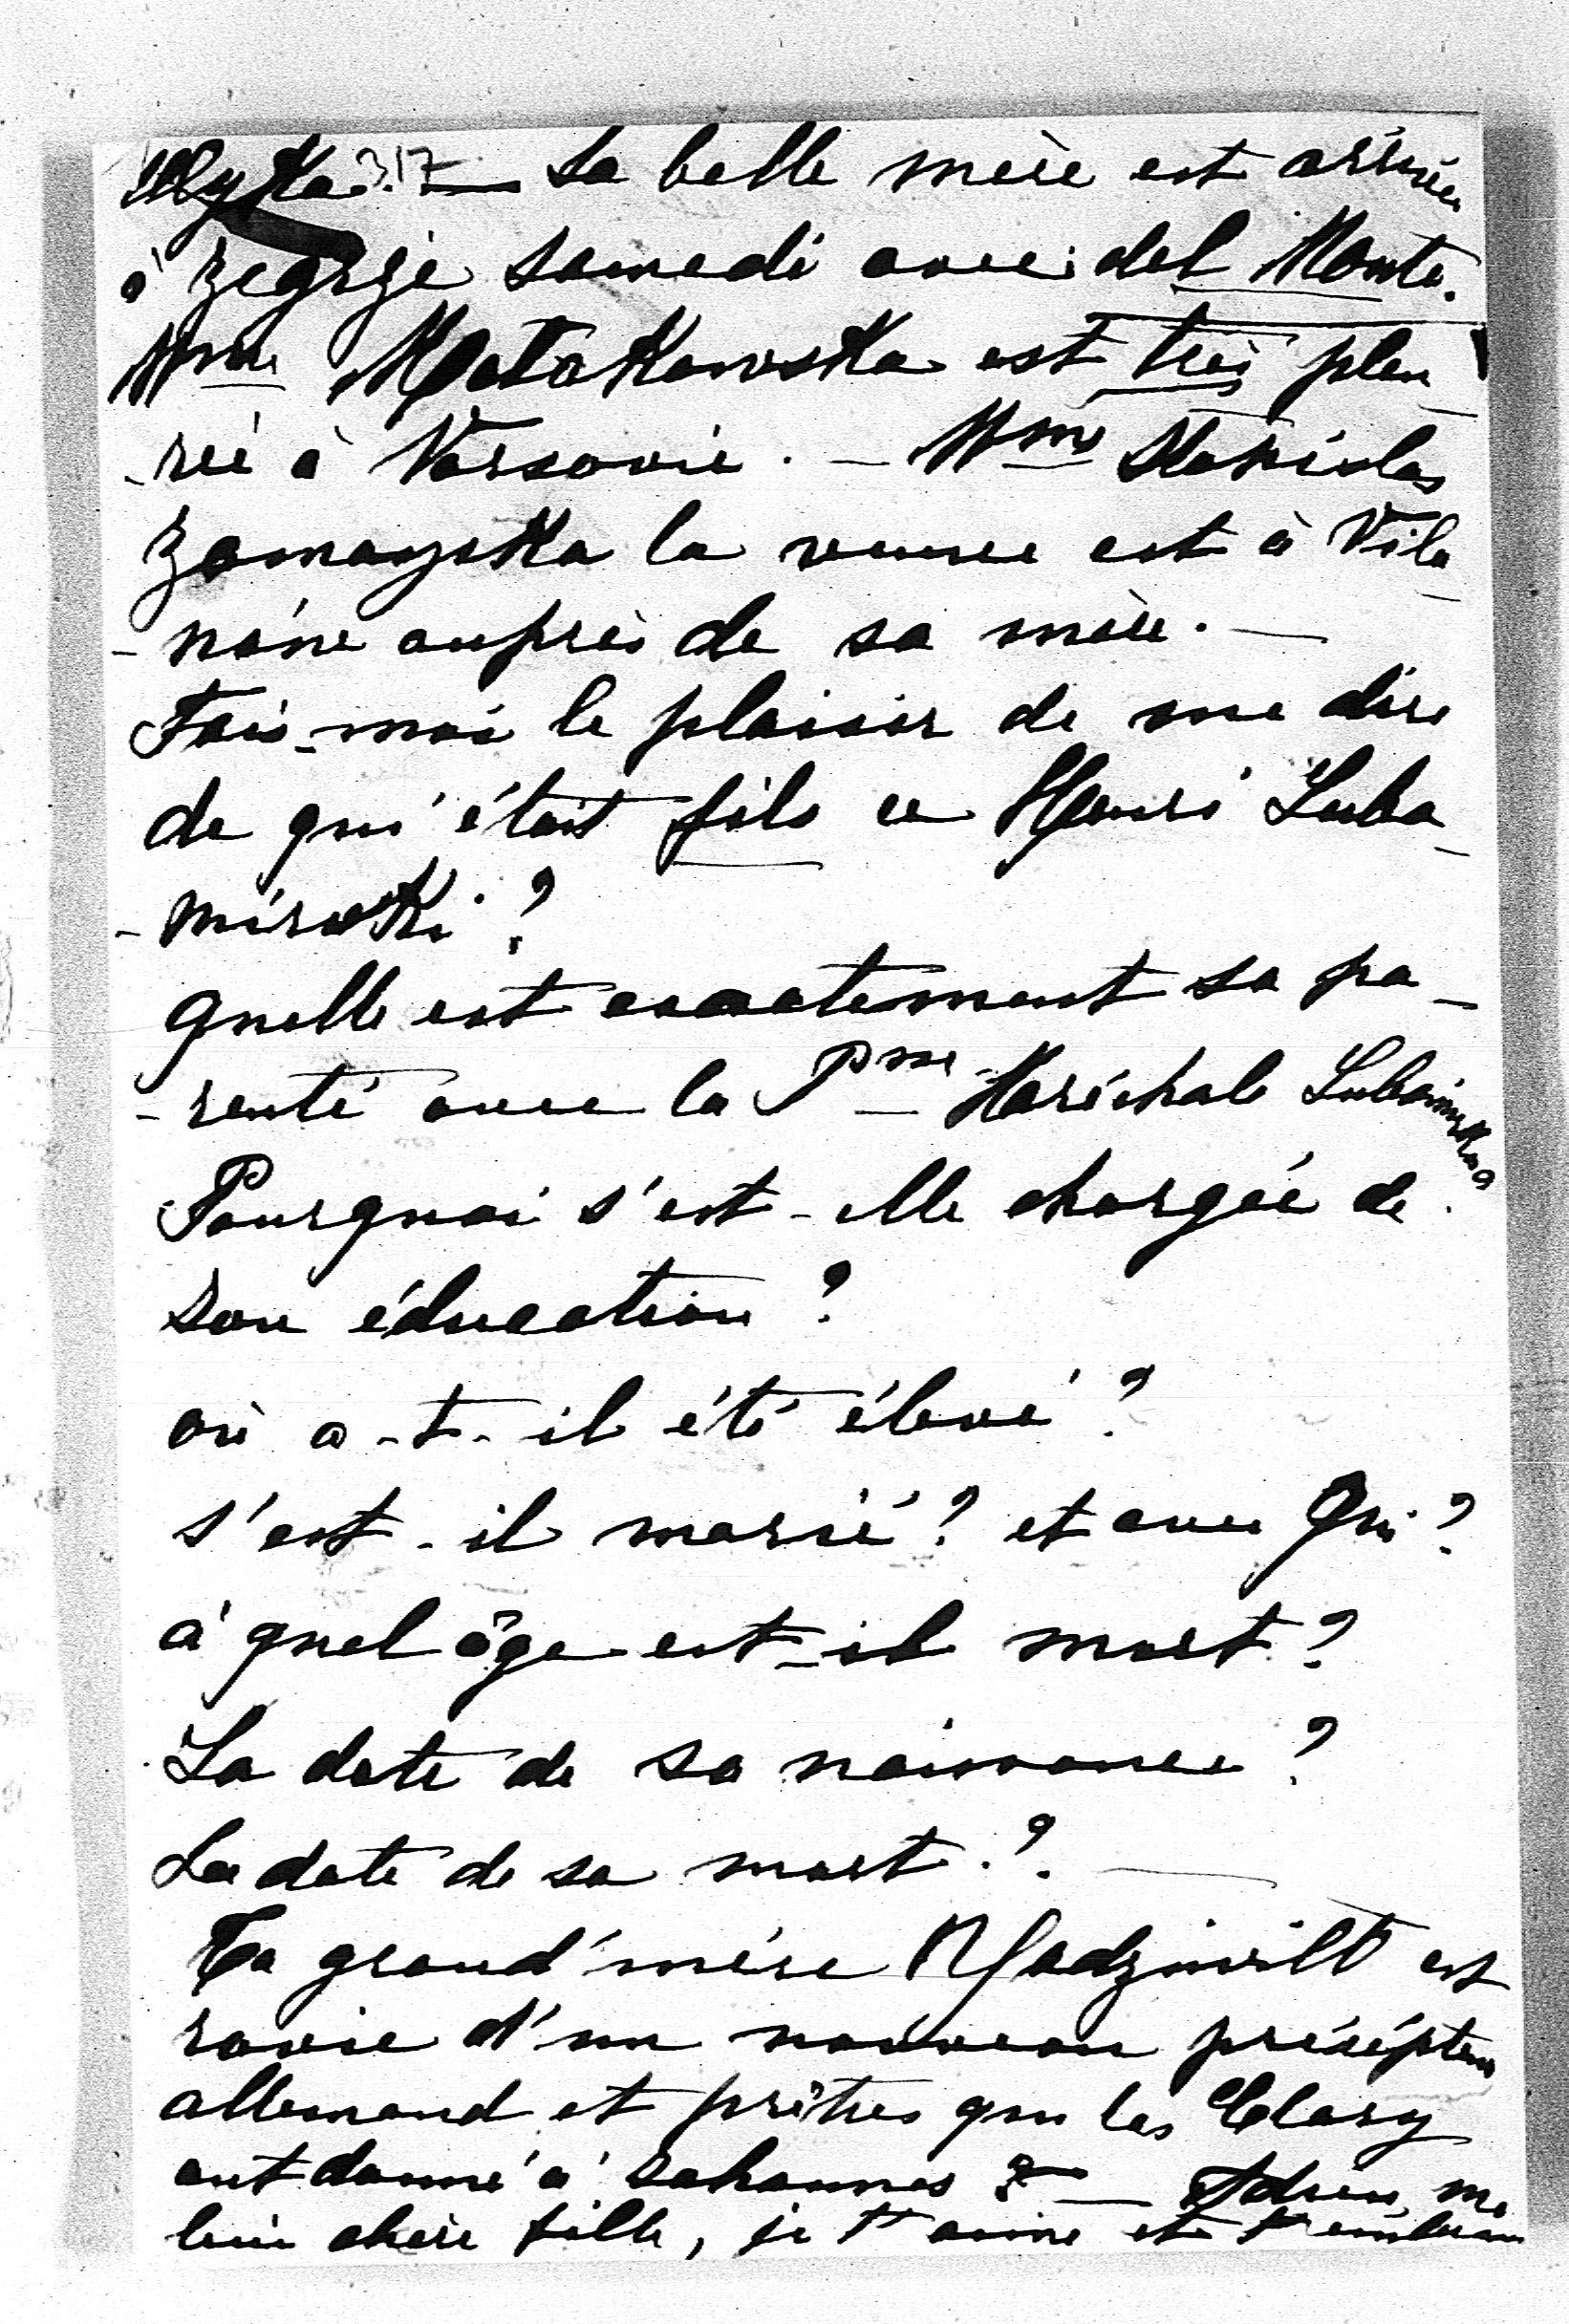 317 — La belle mère est arrivée
à Zegrze samedi avec del Monte.
Mme Małakowska est très pleu
-rée à Varsovie. — Mme Stanislas
Zamoyska la veuve est à Vila
- nów auprès de sa mère. —
Fais-moi le plaisir de me dire
de qui était fils ce Henri Lubo
- mirski ?
Quelle est exactement sa pa-
- renté avec la Psse Maréchale Lubomirska
Pourquoi s'est-elle chargée de
son éducation ?
où a-t-il été élevé ?
s'est-il marié ? et avec Qui ?
à quel âge est-il mort ?
La date de sa naissance ?
La date de sa mort ? —
Ta grand'mère Radziwill est
ravie d'un nouveau précépteur
allemand et prêtres que les Clary
ont donné à Johannes — Adieu, ma
bien chère fille, je t'aime et t'embrasse